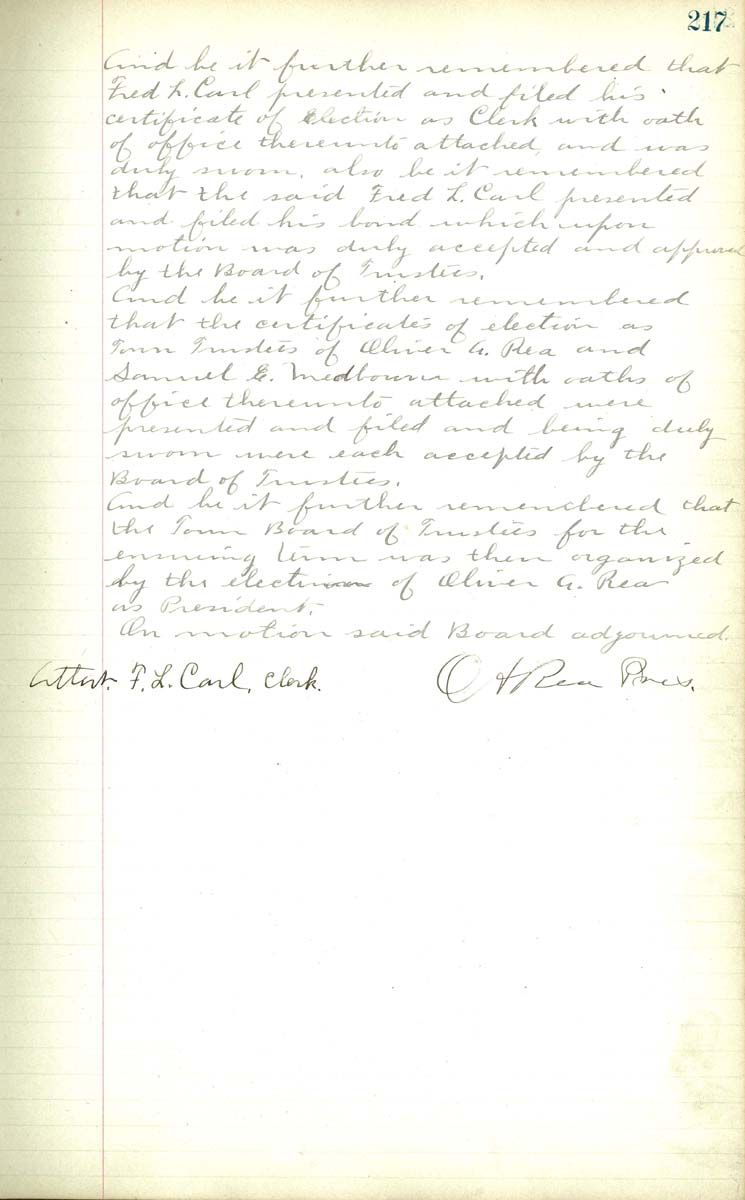 217
And be it further remembered that
Fred L. Carl presented and filed his
certificate of election as Clerk with oath
of office thereunto attached, and was
duly sworn, also be it remembered
that the said Fred L. Carl presented
and filed his bond which upon
motion was duly accepted and approved
by the Board of Trustees.
And be it further remembered
that the certificates of election as
Town Trustees of Oliver A. Rea and
Samuel E. Medbourn with oaths of
office thereunto attached were
presented and filed and being duly
sworn were each accepted by the
Board of Trustees.
And be it further remembered that
the Town Board of Trustees for the
ensuing term was then organized
by the election of Oliver A. Rea
as President.
On motion said Board adjourned.
Attest. F. L. Carl, Clerk. O A Rea Pres.